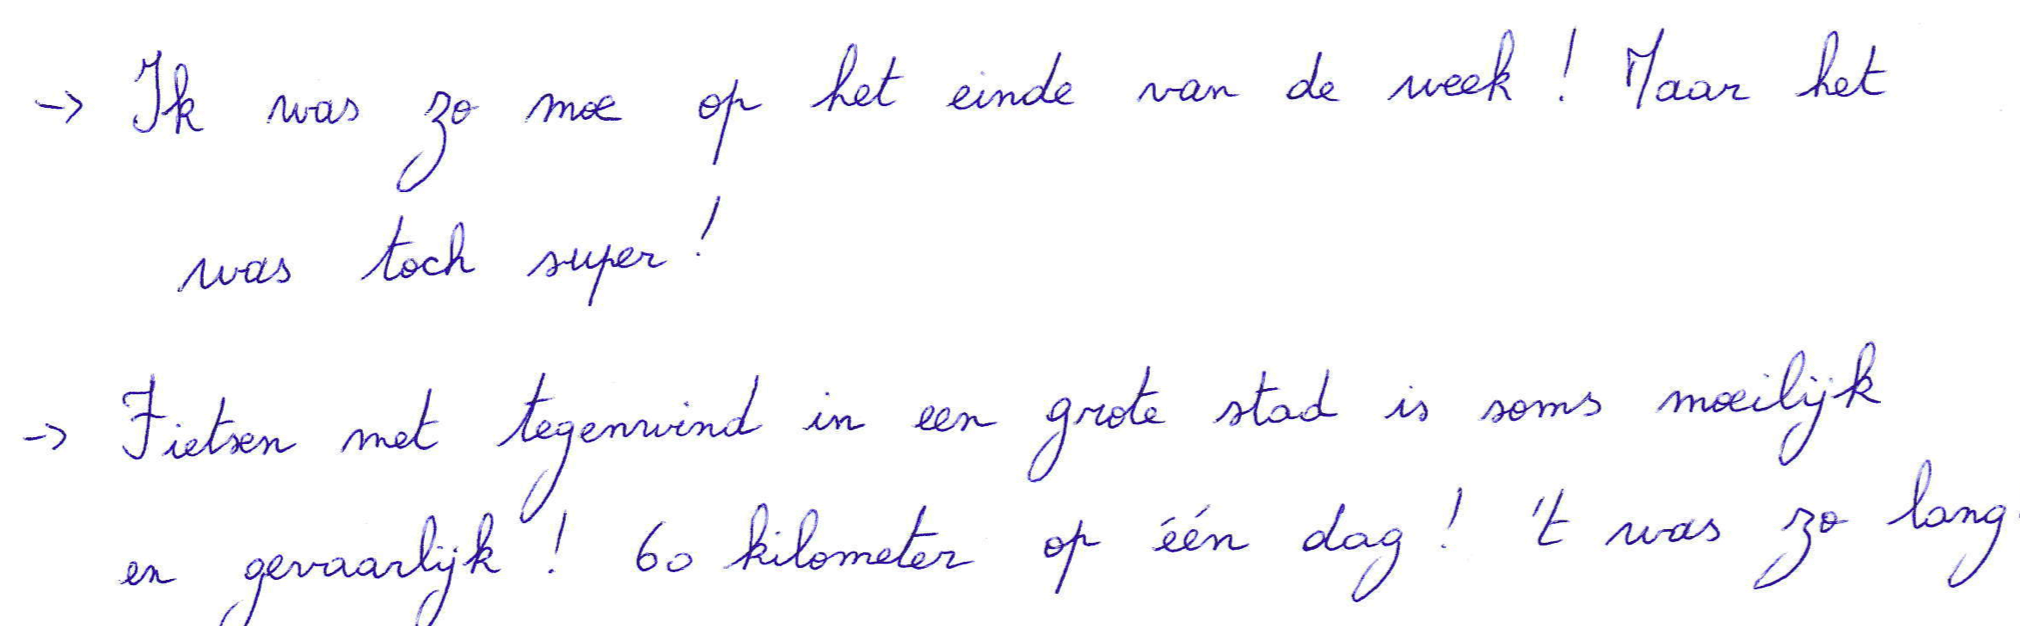 -> Ik was zo moe op het einde van de week ! Maar het
was toch super !
-> Fietsen met tegenwind in een grote stad is soms moeilijk
en gevaarlijk ! 60 kilometer op één dag ! 't was zo lang